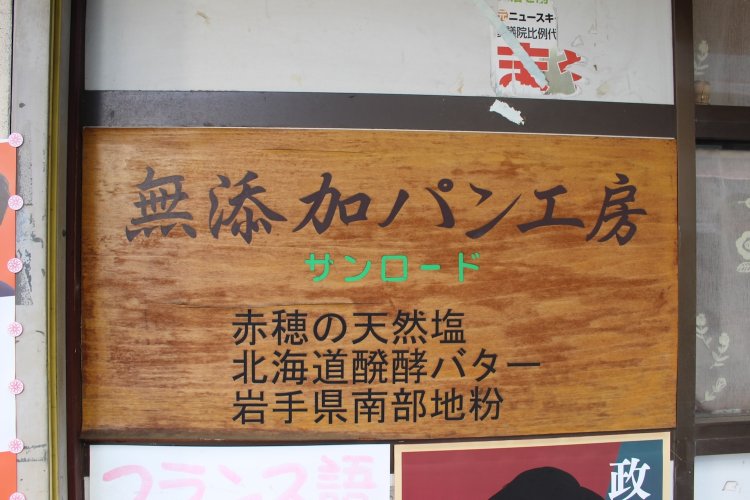 元ニュースキ
議院比例代
無添加パン工房
サンロード
赤穂の天然塩
北海道醗酵バター
岩手県南部地粉
フランス語
政